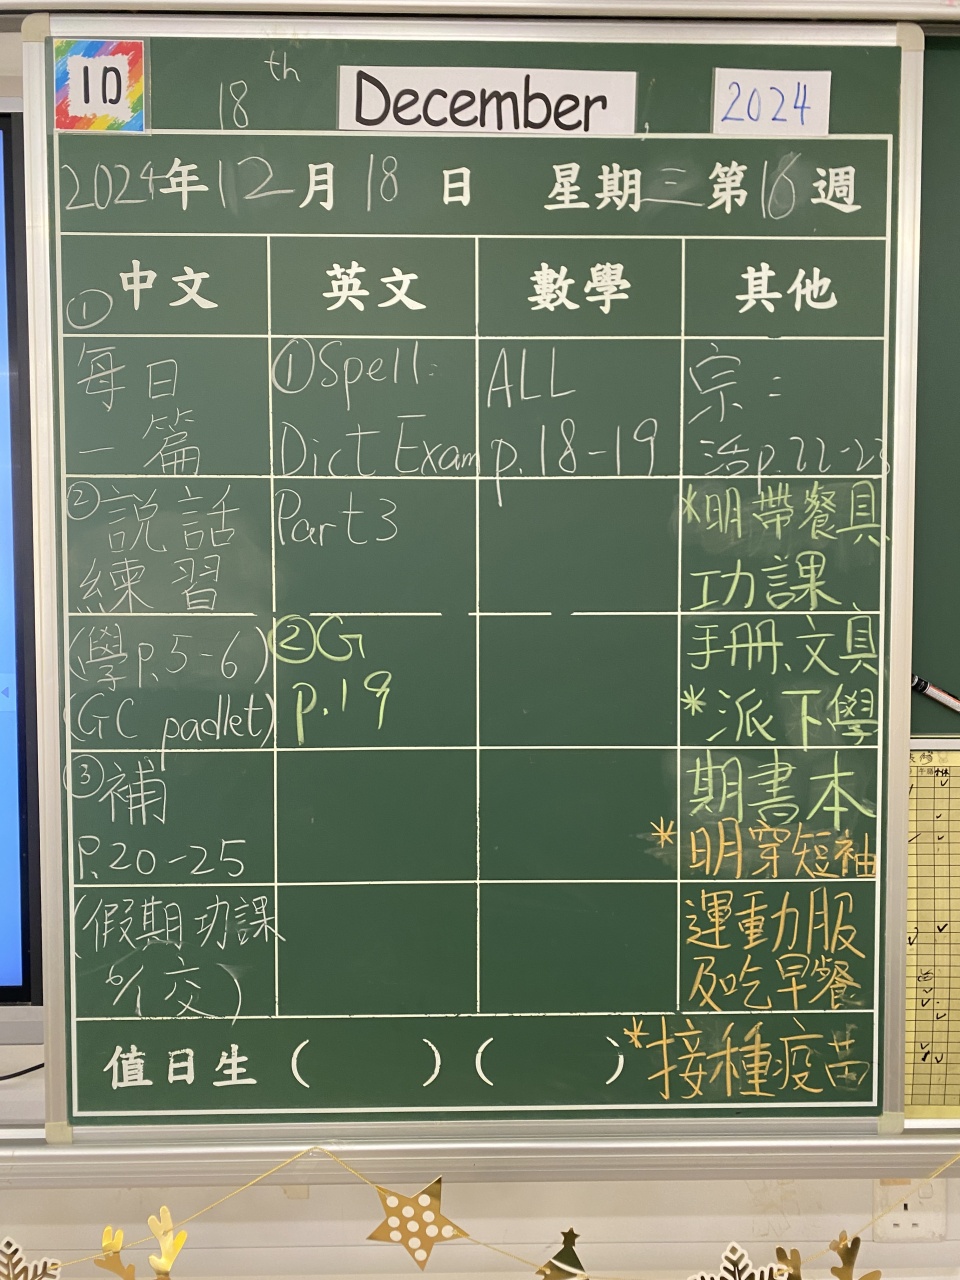 1D
18th December, 2024
2024年12月18日 星期三第16週
中文
英文
數學
其他
①
每日
一篇
②説話
練習
(學P.5-6)
(GC padlet)
③補
P.20-25
(假期功課
6/1交)
①Spell:
Dict Exam
Part3
②G
p.19
ALL
p.18-19
宗:
活p.22-23
*明帶餐具
功課
手冊、文具
*派下學
期書本
*明穿短袖
運動服
及吃早餐
*接種疫苗
值日生( )( )